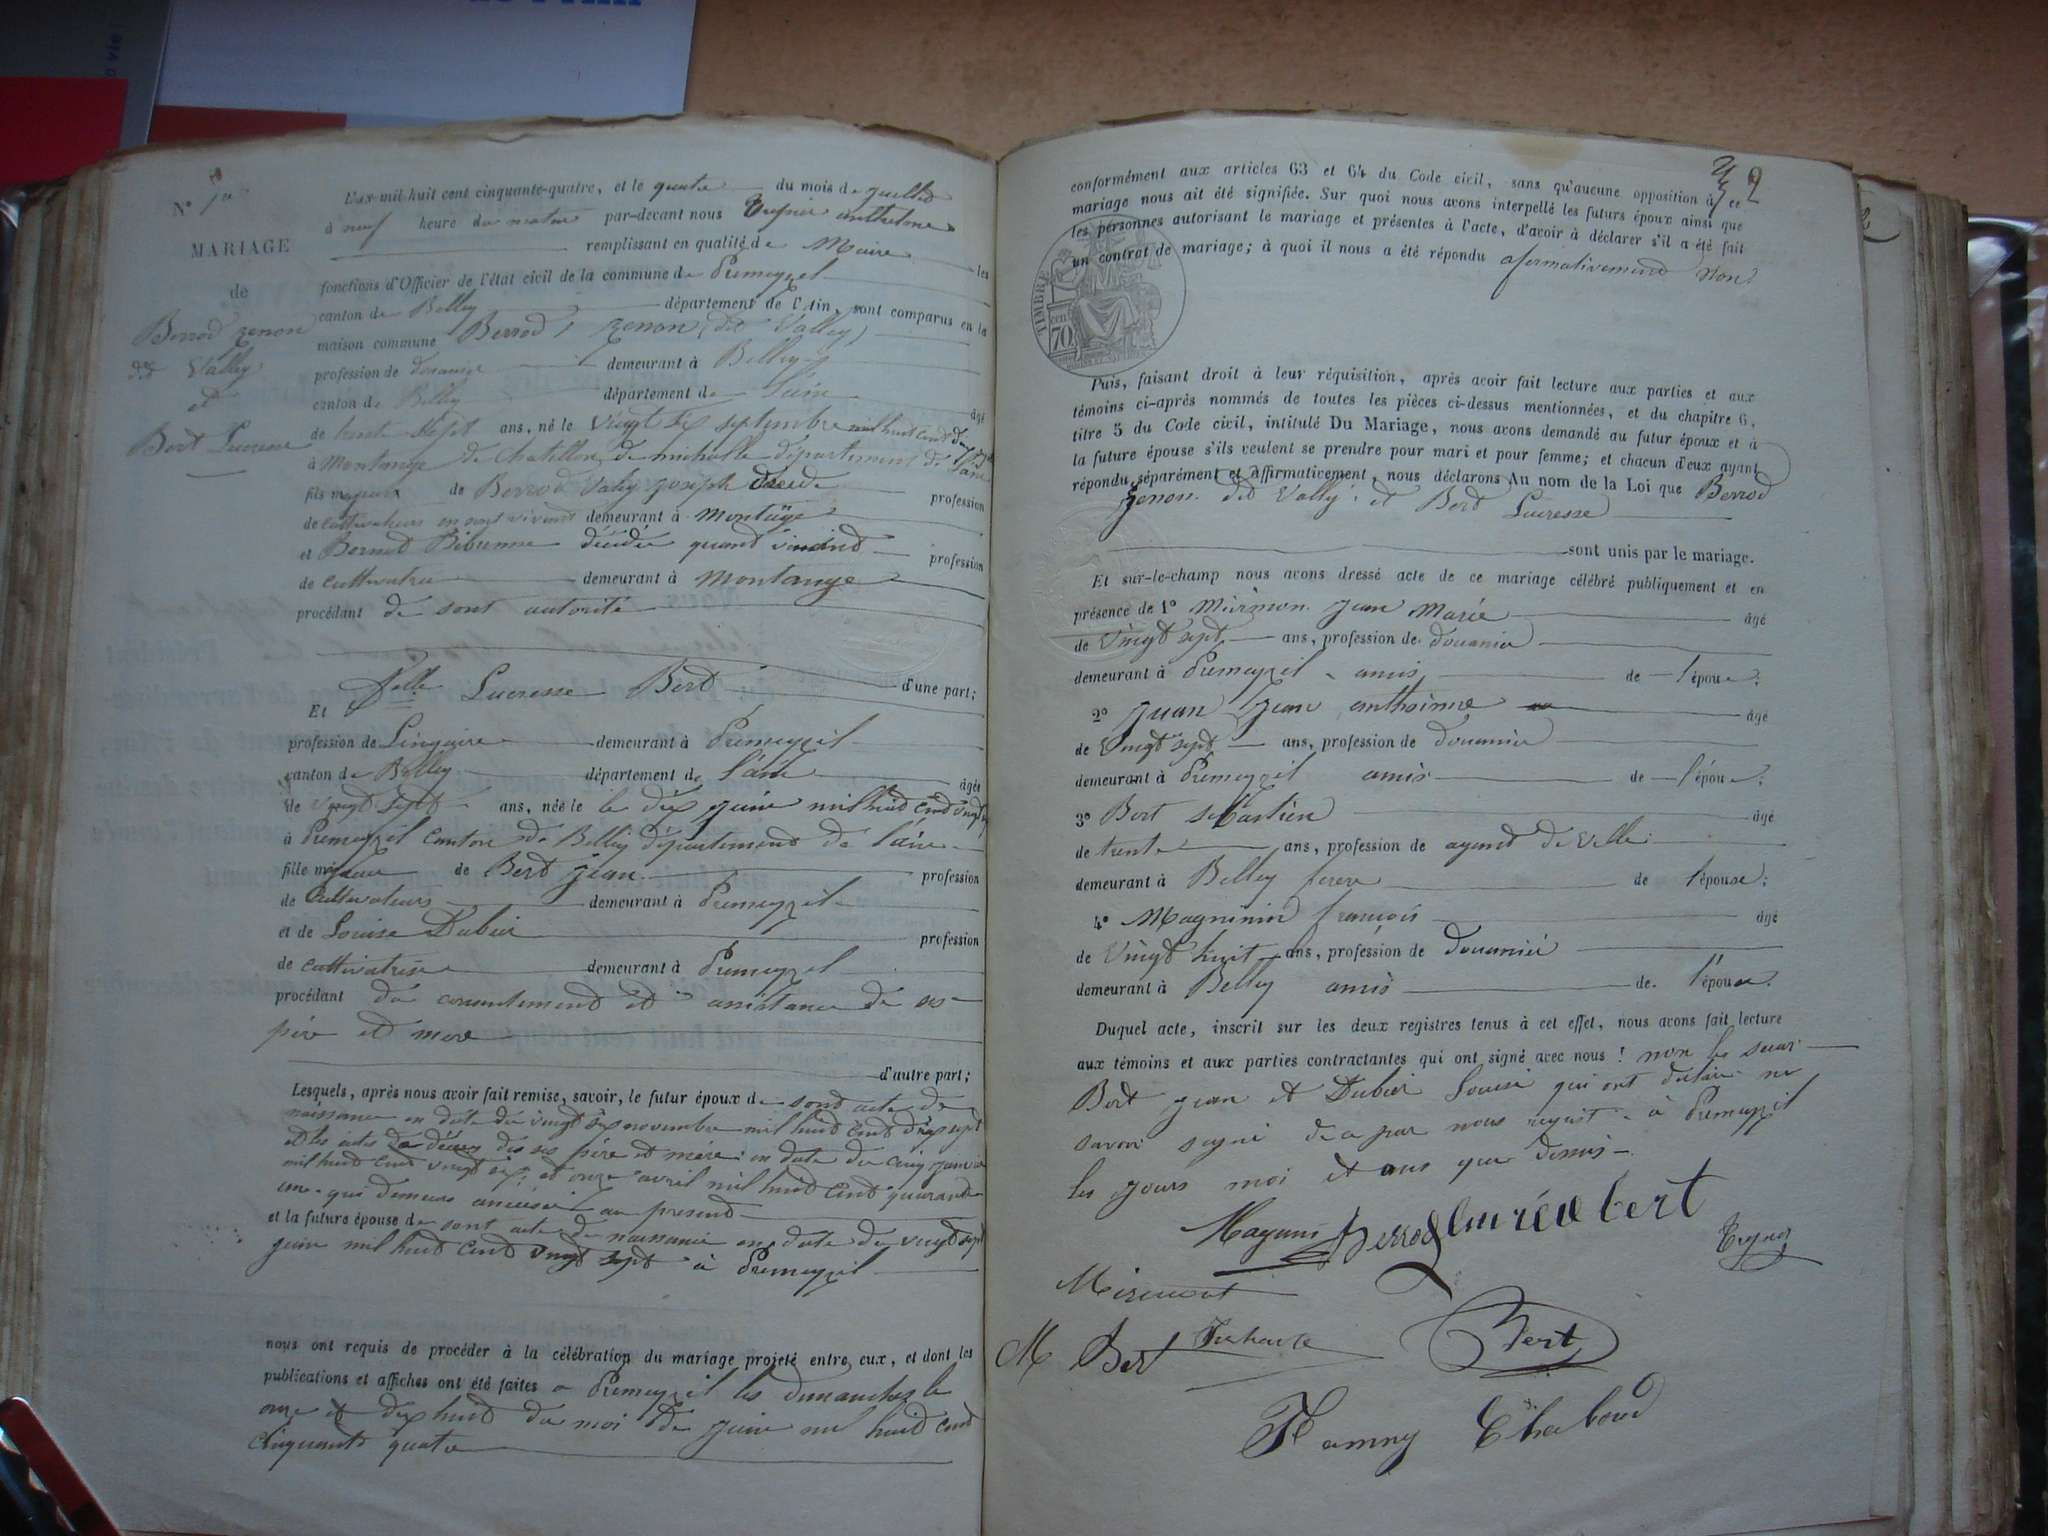 N° 1er
MARIAGE
de
Berrod zenon
dit Valley
et
Bert Lucresse
L'AN mil huit cent cinquante-quatre, et le quatre du mois de
à neuf heure du matin par-devant nous anthelme
remplissant en qualité de Maire les
fonctions d'Officier de l'état civil de la commune de Premeyzel
canton de Belley département de l'Ain, sont comparus en la
maison commune Berrod, zenon (dit Valley)
profession de douanier demeurant à Belley
canton de Belley département de l'ain âgé
de trente sept ans, né le Vingt six septembre mil huit cent dix sept
à Montange de Chatillon de michaille département de l'ain
fils majeur de Berrod Valey joseph décédé profession
de cultivateur en sont vivant demeurant à montange
et Bernard décédée quand vivait profession
de cultivatrice demeurant à Montange
procédant de sont autorité
d'une part;
Et Delle Lucresse Bert
profession de Lingaire demeurant à Premeyzil
canton de Belley département de l'ain âgée
de vingt sept ans, née le le dix juin mil huit cent vingt
à Premeyzil canton de Belley département de l'ain
fille majeure de Bert jean profession
de Cultivateurs demeurant à Premeyzil
et de Louise Dubier profession
de cultivatrise demeurant à Premeyzil
procédant du consentement et assistance de ses
père et mere
d'autre part;
Lesquels, après nous avoir fait remise, savoir, le futur époux de sont acte de
naissance en date du vingt six novembre mil huit cent dix sept
et les actes de décès des ses père et mère en date du cinq janvier
mil huit cent vingt six, et onze avril mil huit cent quarante
une qui demeure au présent
et la future épouse de sont acte de naissance en date du vingt sept
juin mil huit cent vingt sept à Premeyzil
nous ont requis de procéder à la célébration du mariage projeté entre eux, et dont les
publications et affiches ont été faites a Premeyzil les dimanches le
onze et dix huit du moi de juin mil huit cent
cinquante quatre
conformément aux articles 63 et 64 du Code civil, sans qu'aucune opposition à ce
mariage nous ait été signifiée. Sur quoi nous avons interpellé les futurs époux ainsi que
les personnes autorisant le mariage et présentes à l'acte, d'avoir à déclarer s'il a été fait
un contrat de mariage; à quoi il nous a été répondu afermativement Non
TIMBRE
70 cen
Puis, faisant droit à leur réquisition, après avoir fait lecture aux parties et aux
témoins ci-après nommés de toutes les pièces ci-dessus mentionnées, et du chapitre 6,
titre 5 du Code civil, intitulé Du Mariage, nous avons demandé au futur époux et à
la future épouse s'ils veulent se prendre pour mari et pour femme; et chacun d'eux ayant
répondu séparément et affirmativement, nous déclarons Au nom de la Loi que Berrod
zenon dit Vally et Bert Lucresse
sont unis par le mariage.
Et sur-le-champ nous avons dressé acte de ce mariage célébré publiquement et en
présence de 1° jean marie âgé
de vingt sept ans, profession de douanier
demeurant à Premeyzil amis de l'époux;
2° juan jean anthoinne âgé
de Vingt sept ans, profession de douanier
demeurant à Premeyzil amis de l'époux;
3° Bert sebastien âgé
de trente ans, profession de agend de ville
demeurant à Belley frere de l'épouse;
4° Magninin françois âgé
de Vingt huit ans, profession de douanier
demeurant à Belley amis de l'épouse.
Duquel acte, inscrit sur les deux registres tenus à cet effet, nous avons fait lecture
aux témoins et aux parties contractantes qui ont signé avec nous ! non les sieur
Bert jean et Dubier Louise qui ont déclaré ne
savoir signé de a par nous requit à Premeyzil
les jours moi et ans que dessus
Berrod bert
M Bert
Bert